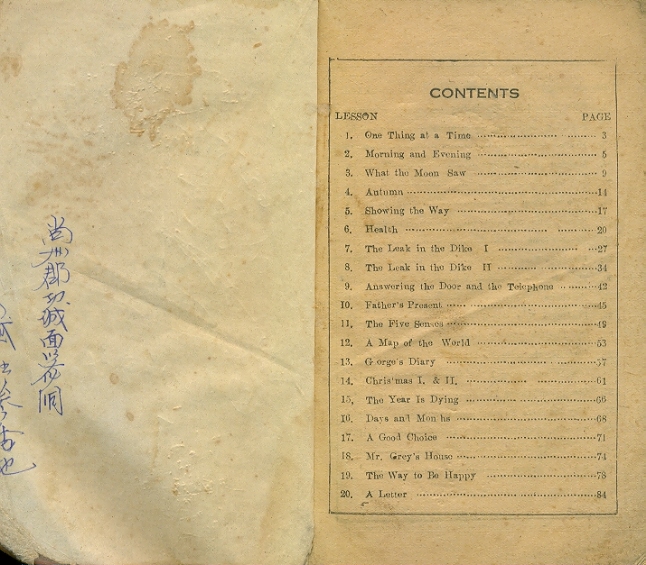 尚州郡功城面
CONTENTS
LESSON PAGE
1. One Thing at a Time 3
2. Morning and Evening 5
3. What the Moon Saw 9
4. Autumn 14
5. Showing the Way 17
6. Health 20
7. The Leak in the Dike I 27
8. The Leak in the Dike II 34
9. Answering the Door and the Telephone 42
10. Father's Present 45
11. The Five Senses 49
12. A Map of the World 53
13. George's Diary 57
14. Christmas I. & II. 61
15. The Year Is Dying 66
16. Days and Months 68
17. A Good Choice 71
18. Mr. Grey's House 74
19. The Way to Be Happy 78
20. A Letter 84